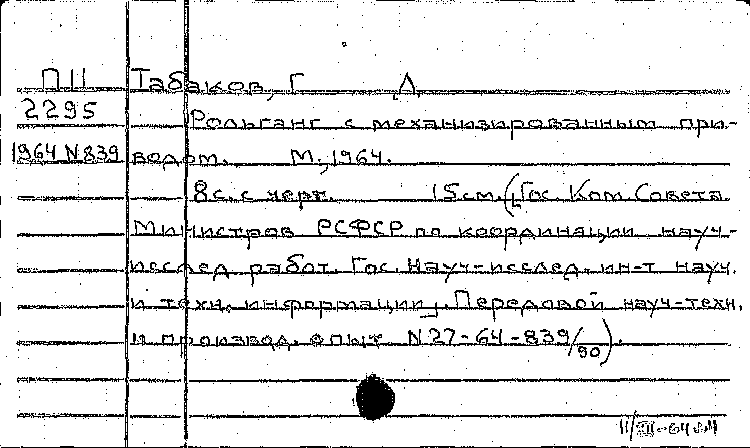 П11 Табаков, Г Д
2295 Рольганг с механизированным при-
1964 N 839 водом. М., 1964.
8 с. с черт. 15 см. ([Гос. Ком. Совета
Министров РСФСР по координации науч-
исслед. работ. Гос. Науч-исслед. ин-т науч.
и техн. информации]. Передовой науч-техн.
и производ. опыт N 27-64-839/90).